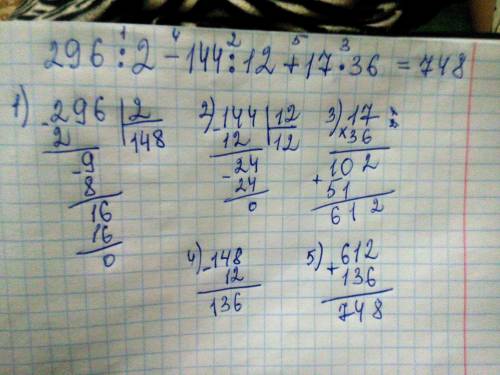 1 4 2 5 3
296 : 2 - 144 : 12 + 17 · 36 = 748
1) - 296 | 2
2 | 148
- 9
8
16
16
0
2) - 144 | 12
12 | 12
- 24
24
0
3) 17
× 36
102
+ 51
612
4) - 148
12
136
5) + 612
136
748